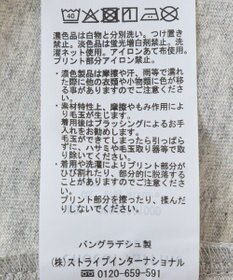 40
濃色品は白物と分別洗い。つけ置き
禁止。淡色品は蛍光増白剤禁止。洗
濯ネット使用。アイロンあて布使用。
プリント部分アイロン禁止。
・濃色製品は摩擦や汗、雨等で濡れ
た際に他の衣類や小物類に色が移
ることがありますのでご注意くださ
い。
・素材特性上、摩擦やもみ作用によ
り毛玉が生じます。
着用後はブラッシングによるお手
入れをお勧めします。
毛玉ができてしまったら引っぱら
ずに、ハサミや毛玉取り器等で取
り除いてください。
・着用や洗濯によりプリント部分が
ひび割れたり、部分的に脱落する
ことがあります。
プリント部分を擦ったり、揉んだ
りしないでください。
バングラデシュ製
(株)ストライプインターナショナル
☎ 0120-659-591